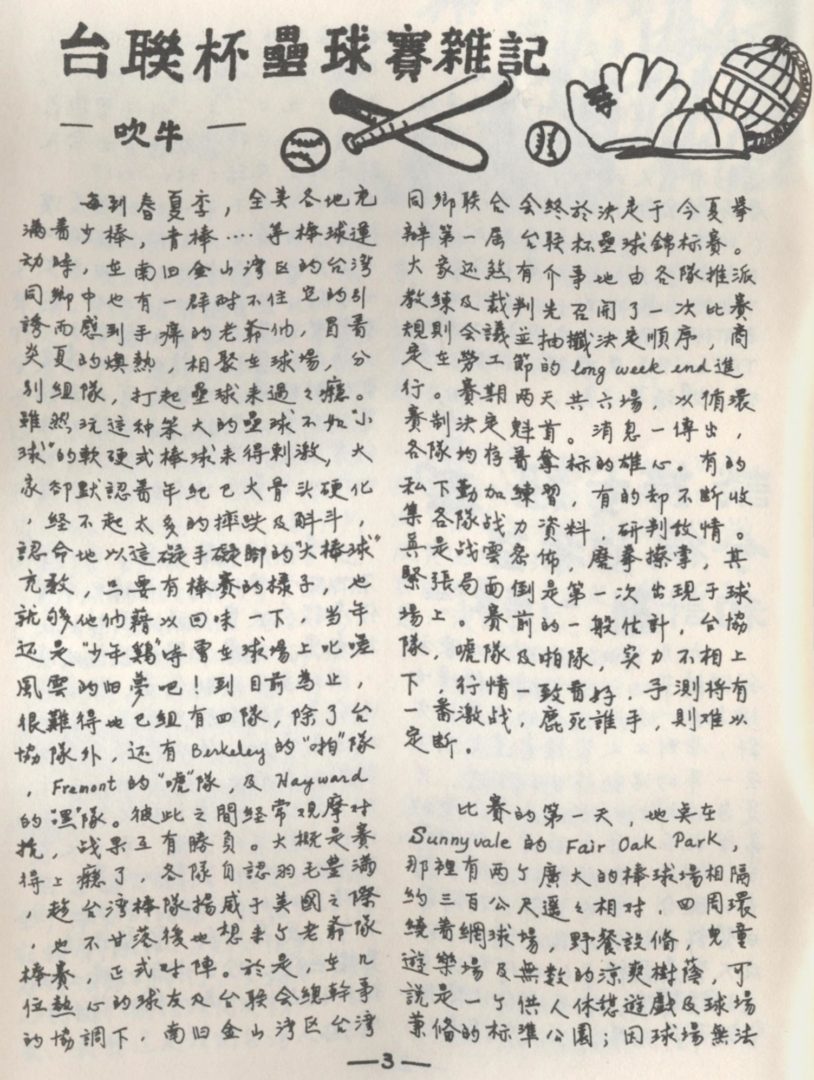 台聯杯壘球賽雜記
— 吹牛 —
每到春夏季，全美各地充
滿着少棒，青棒‥‥等棒球運
动時，在南旧金山湾区的台湾
同鄉中也有一群耐不住它的引
誘而感到手癢的老爺們，冒着
炎夏的燠熱，相聚在球場，分
別組隊，打起壘球来過々癮。
雖然玩這种笨大的壘球不如"小
球"的軟硬式棒球来得刺激，大
家卻默認着年紀已大骨头硬化
，经不起太多的摔跌及酣斗，
認命地以這礙手礙脚的"大棒球"
充数，只要有棒賽的樣子，也
就够他們藉以回味一下，当年
还是"少年鷄"時曾在球場上叱咤
風雲的旧夢吧！到目前為止，
很難得也已組有四隊，除了台
協隊外，还有Berkeley的"啪"隊
，Fremont的"唬"隊，及Hayward
的"黑"隊。彼此之間経常观摩对
抗，战果互有勝負。大概是賽
得上癮了，各隊自認羽毛豊滿
，趁台湾棒隊揚威于美國之際
，也不甘落後也想来个老爺隊
棒賽，正式对陣。於是，在几
位熱心的球友及台联会總幹事
的協調下，南旧金山湾区台湾
同鄉联合会終於決定于今夏舉
辦第一届台联杯壘球錦标賽。
大家还煞有介事地由各隊推派
教練及裁判先召開了一次比賽
規則会議並抽籤決定順序，商
定在勞工節的long week end進
行。賽期两天共六場，以循環
賽制決定魁首。消息一傳出，
各隊均存着奪标的雄心。有的
私下勤加練習，有的却不断收
集各隊战力資料，研判敌情。
真是战雲密佈，磨拳擦掌，其
緊張局面倒是第一次出現于球
場上。賽前的一般估計，台協
隊，唬隊及啪隊，实力不相上
下，行情一致看好，予測将有
一番激战，鹿死誰手，則难以
定断。
比賽的第一天，地点在
Sunnyvale的Fair Oak Park，
那裡有两个廣大的棒球場相隔
約三百公尺遥々相对，四周環
繞着網球場，野餐設俻，兒童
遊樂場及無数的涼爽樹蔭，可
説是一个供人休憩遊戲及球場
兼俻的标準公園；因球場無法
—3—